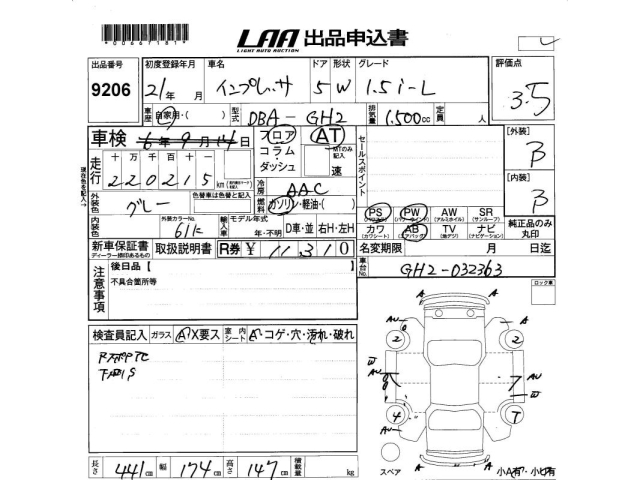 *00667181*
LAA 出品申込書
LIGHT AUTO AUCTION
出品番号 初度登録年月 車名 ドア 形状 グレード 評価点
9206 21年 月 インプレッサ 5 W 1.5i-L 3.5
車歴 自家用・( ) 型式 DBA-GH2 排気量 1,500cc 定員 人
車検 6年9月14日 フロア AT セールスポイント [外装] B
コラム・ダッシュ MTのみ記入 速
走行 十万千百十 220215 km
冷房 AAC [内装] B
外装色 グレー 色替車は色替と記入 燃料 ガソリン・軽油・( )
PS (パワーステ) PW (パワーウィンド) AW (アルミホイル) SR (サンルーフ)
内装色 外装カラーNo. 61K 輸入車 モデル年式 年・不明 D車・並 右H・左H
カワ (カワシート) AB (エアバッグ) TV (地デジ) ナビ (ナビゲーション) 純正品のみ丸印
新車保証書 ディーラー捺印あるもの 取扱説明書 R券 ¥ 11310 名変期限 月 日迄
車台No. GH2-032363
注意事項 後日品【
不具合箇所等
ロック車
検査員記入 ガラス A X要ス 室内シート A・コゲ・穴・汚れ・破れ
下回りS
A A
AU A
2 2
W
AU AU
W
4 7
AU
スペア 小A有・小U有
長さ 441cm 幅 174cm 高さ 147cm 積載量 kg